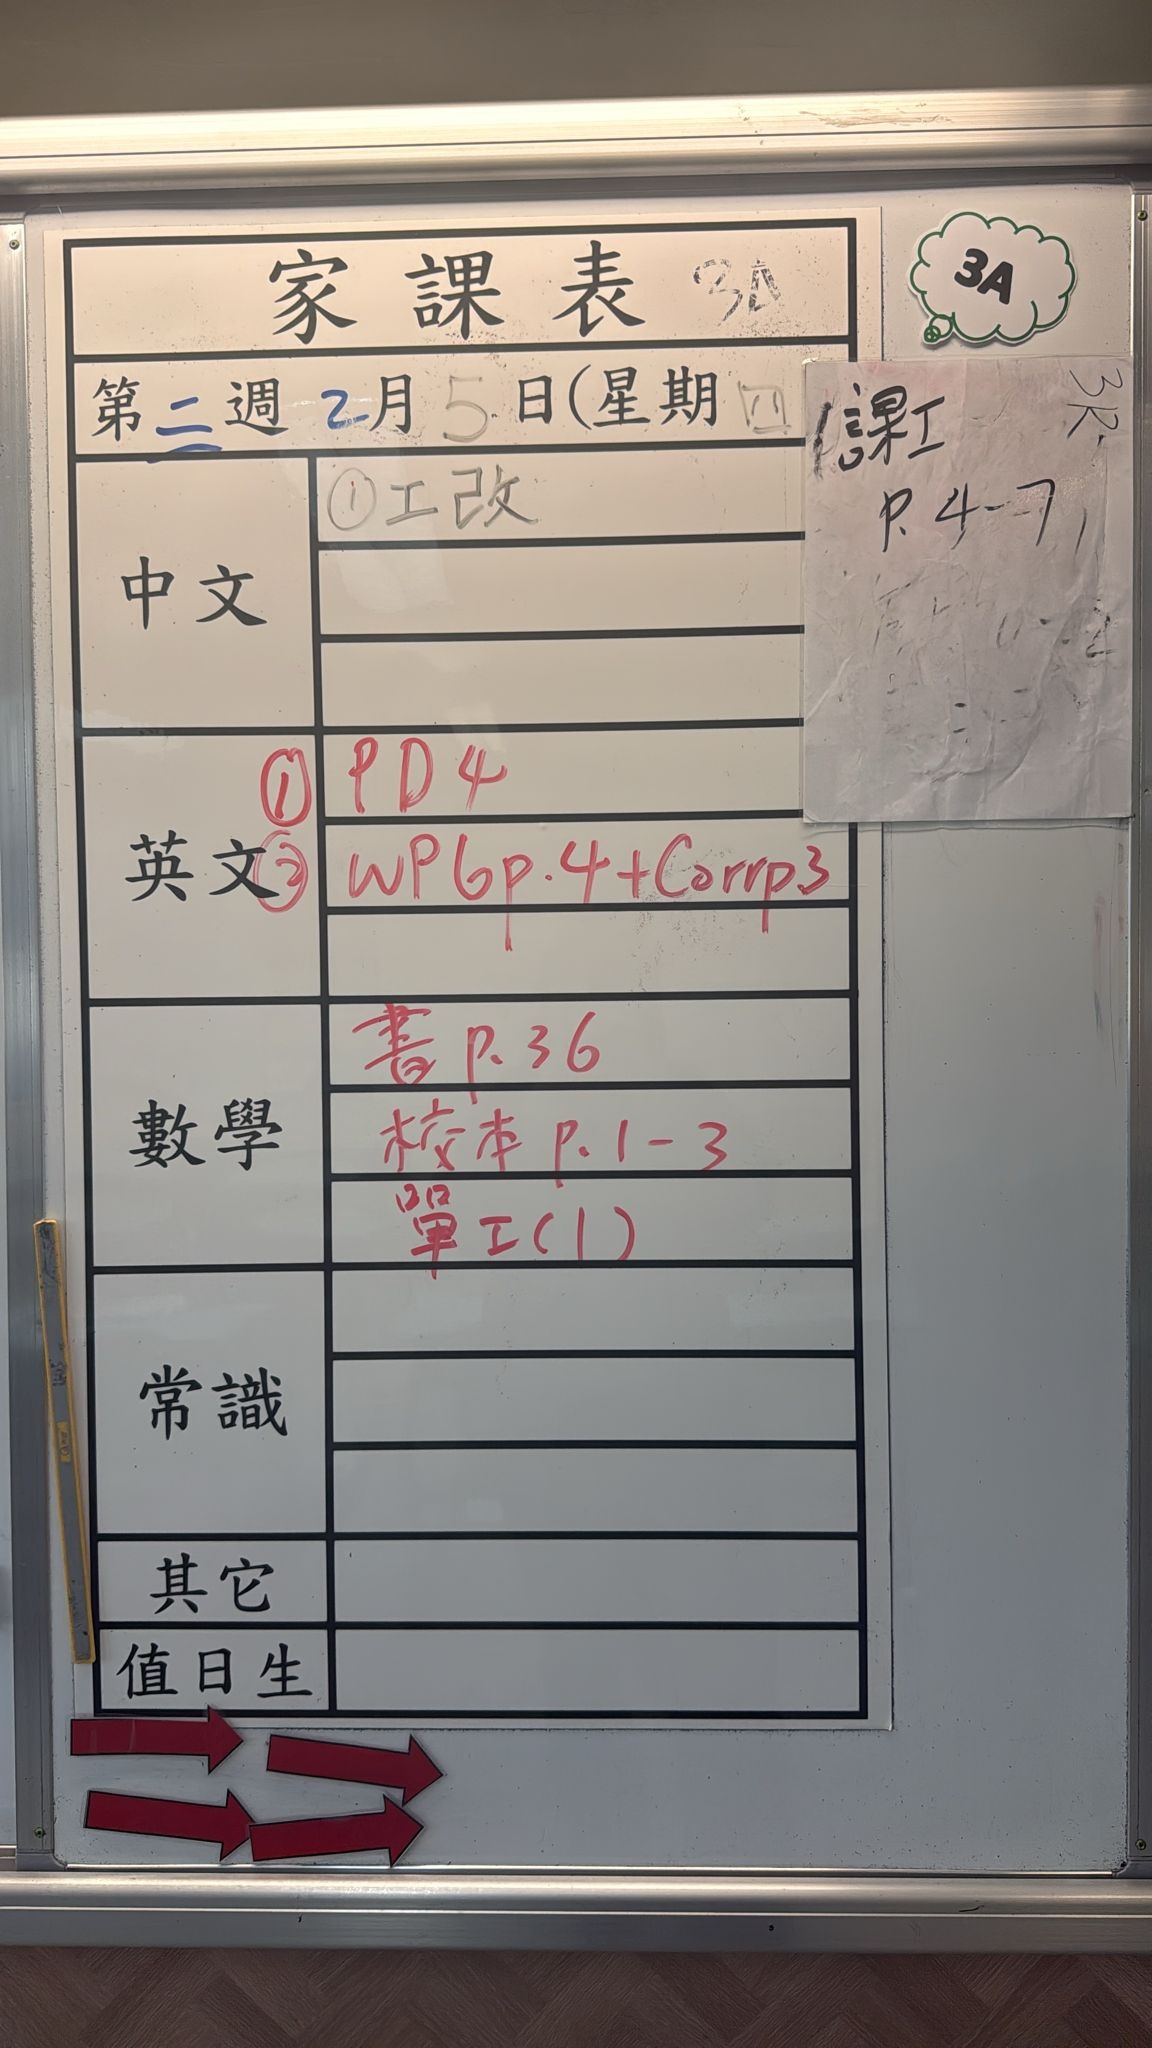 家課表 3A
3A
第二週 2月5日(星期四
3R
課工
P. 4-7
中文
①工改
英文
① PD4
② WPGp.4+Corrp3
數學
書 p.36
校本 p.1-3
單工(1)
常識
其它
值日生